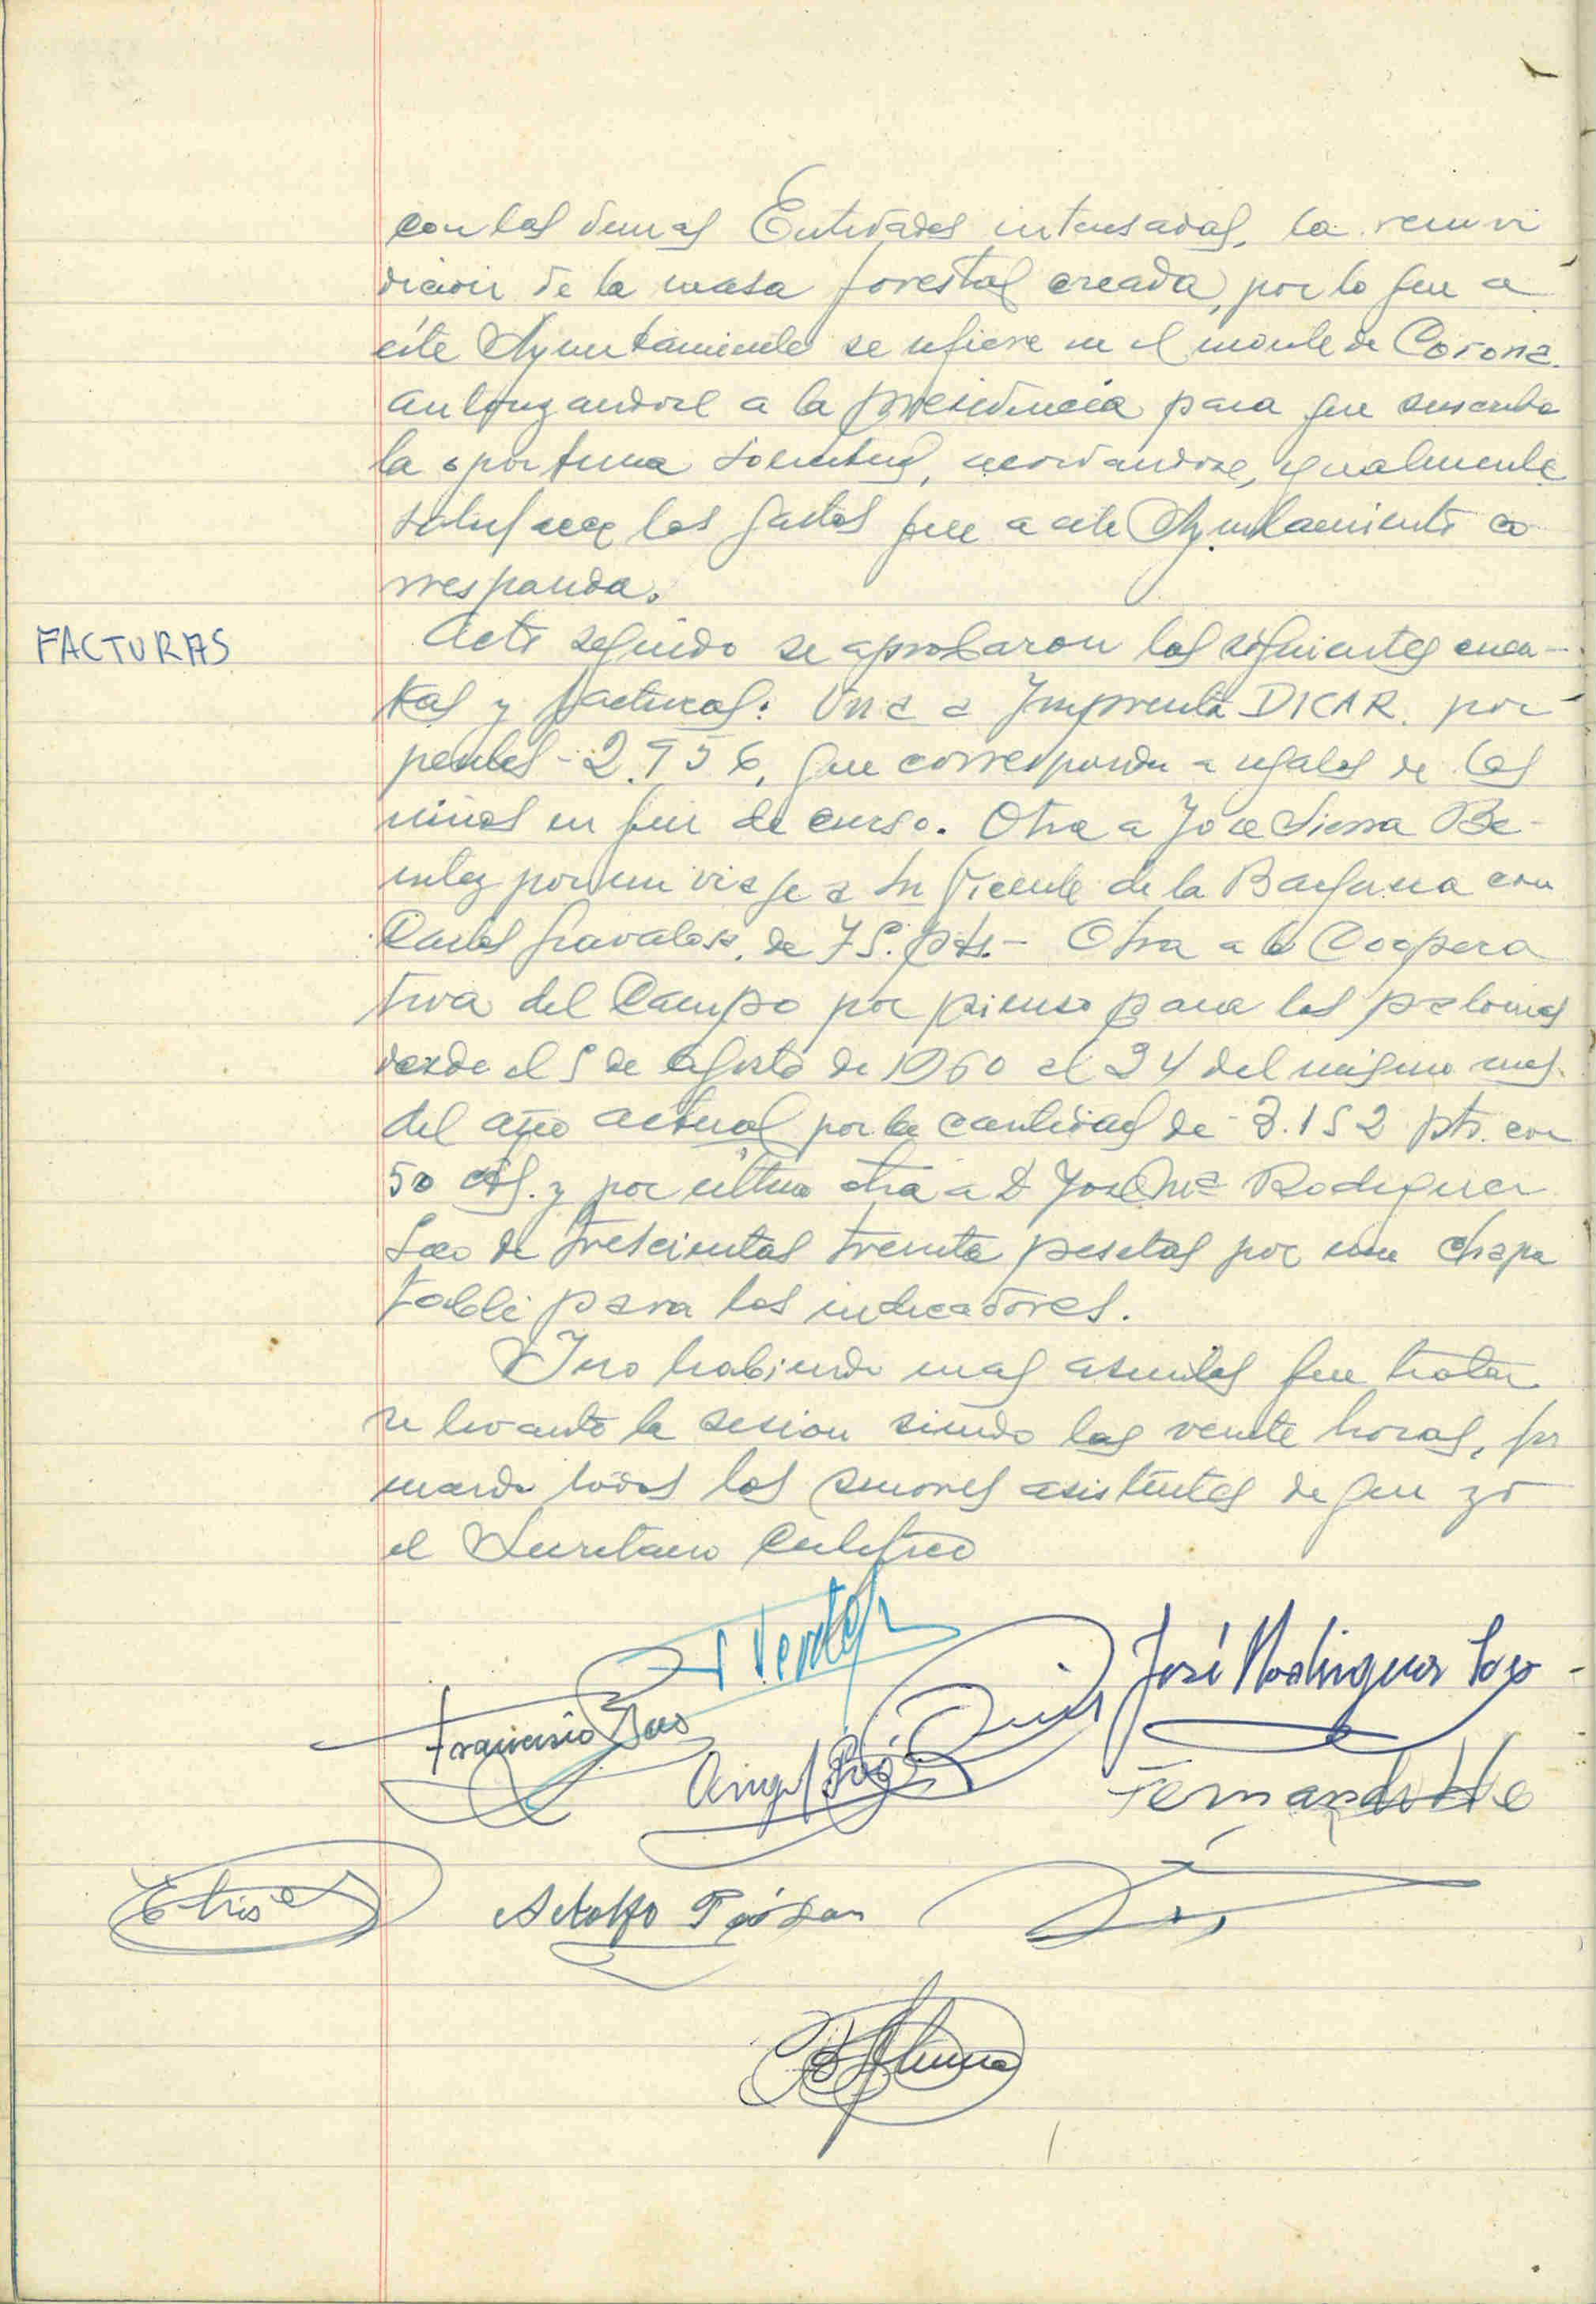 con las demas Entidades interesadas, la reunvi
dicion de la masa forestal creada, por lo que a
éste Ayuntamiento se refiere en el monte de Corona.
autorizandose a la presidencia para que suscriba
la oportuna solicitud, acordandose, igualmente
satisfacer los gastos que a este Ayuntamiento co
rresponda.
FACTURAS
Acto seguido se aprobaron las siguientes cuen-
tas y facturas: Una a Imprenta DICAR. por
pesetas - 2.956, que corresponde a regalos de los
niños en fin de curso. Otra a Jose Sierra Be-
nitez por un viaje a Sn Vicente de la Barquera con
Carlos de 75. pts.- Otra a la Coopera
tiva del Campo por pienso para las palomas
desde el 5 de agosto de 1960 al 24 del mismo mes.
del año actual por la cantidad de - 3.152 pts. con
50 cts. y por último otra a D Jose Mª Rodriguez
de trescientas treinta pesetas por una chapa
para los indicadores.
Y no habiendo mas asuntos que tratar
se levanto la sesion siendo las veinte horas, fir
mando todos los señores asistentes de que yo
el Secretario certifico
José Rodriguez
Francisco
Angel
Fernando
Adolfo